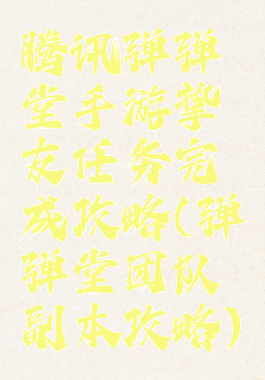 腾讯弹弹
堂手游挚
友任务完
成攻略(弹
弹堂团队
副本攻略)